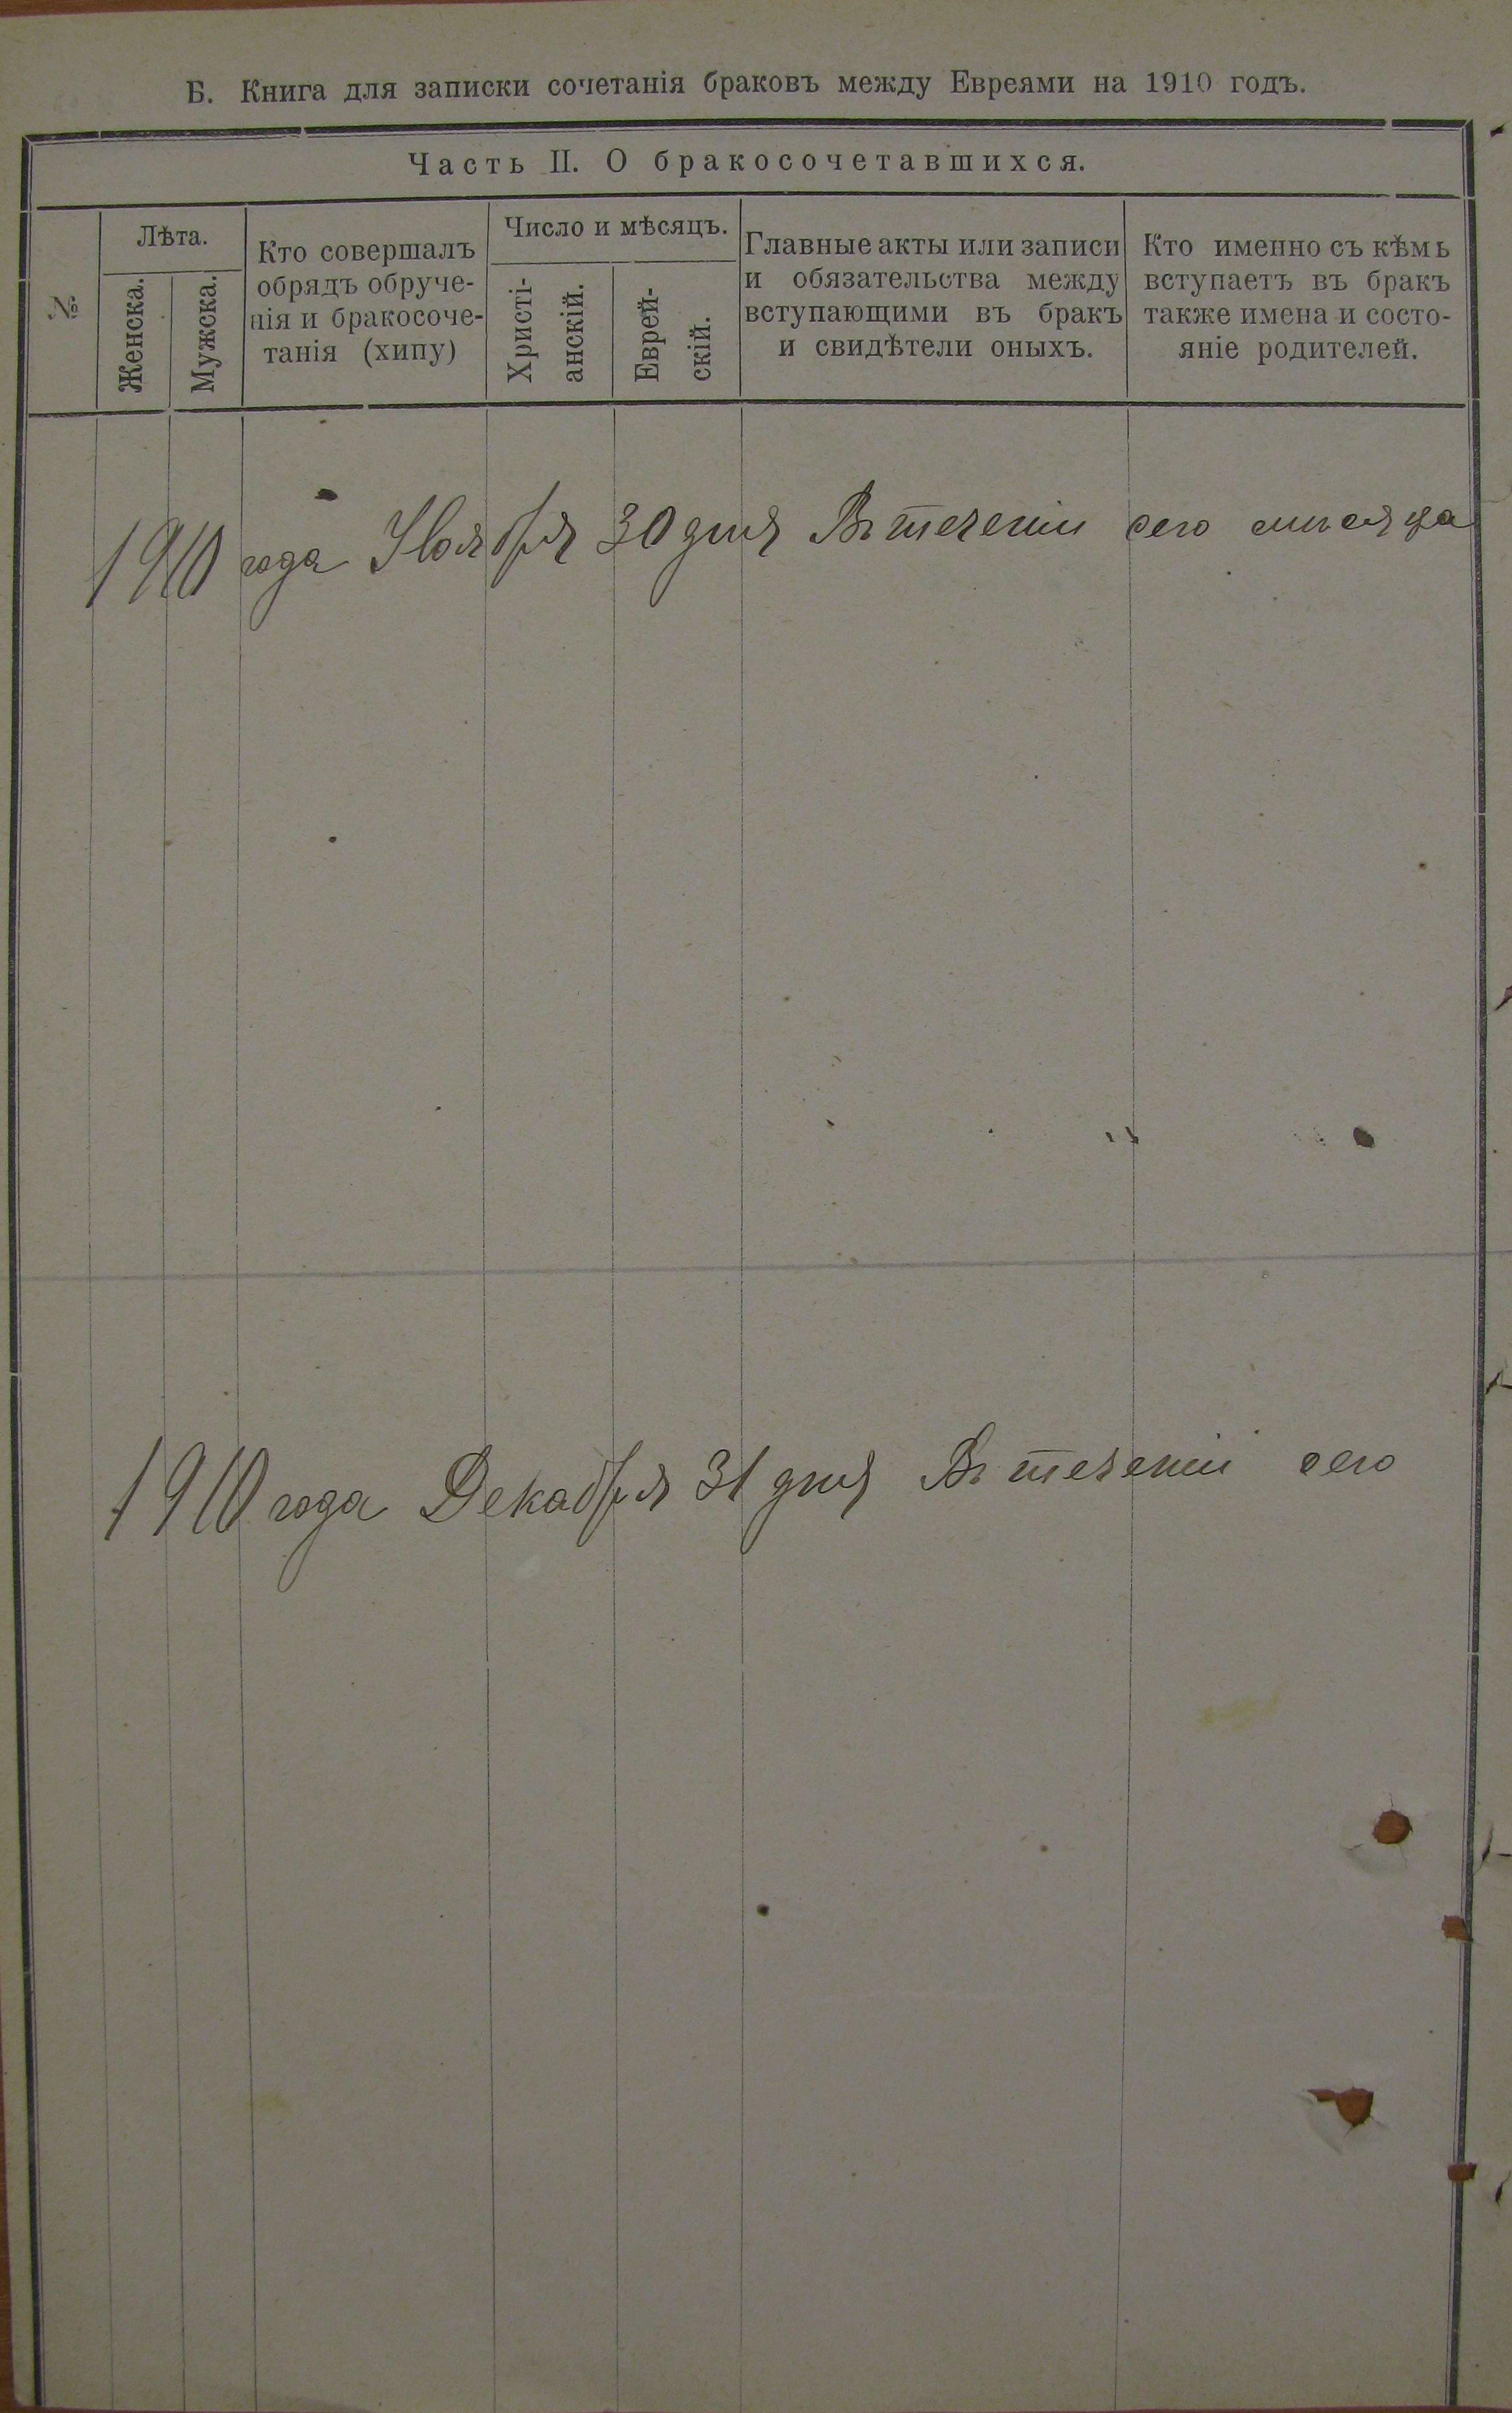 Б. Книга для записки сочетанія браковъ между Евреями на 1910 годъ.
Часть II. О бракосочетавшихся.
№
Лѣта.
Женска.
Мужска.
Кто совершалъ
обрядъ обруче-
нія и бракосоче-
танія (хипу)
Число и мѣсяцъ.
Христі-
анскій.
Еврей-
скій.
Главные акты или записи
и обязательства между
вступающими въ бракъ
и свидѣтели оныхъ.
Кто именно съ кѣмъ
вступаетъ въ бракъ
также имена и состо-
яніе родителей.
1910 года Ноября 30 дня Въ теченіи сего мѣсяца
1910 года Декабря 31 дня Въ теченіи сего